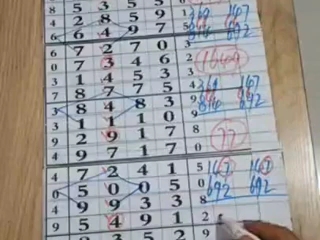 8 5 3 5 5
4 2 8 5 9 5 369 167
6 6 4 9 7 814 892
6 7 2 7 0 3
0 7 3 4 6 2 1649
3 1 4 5 3 3
1 8 7 7 5 4 369 167
3 8 4 8 3 9 814 892
3 1 1 1 0 9
2 2 9 1 7 8
4 9 7 1 7 0 77
4 7 2 4 1 5 167 167
0 5 0 0 5 0 692 692
4 9 9 3 3 8
0 5 4 9 1 2
3 5 2 9